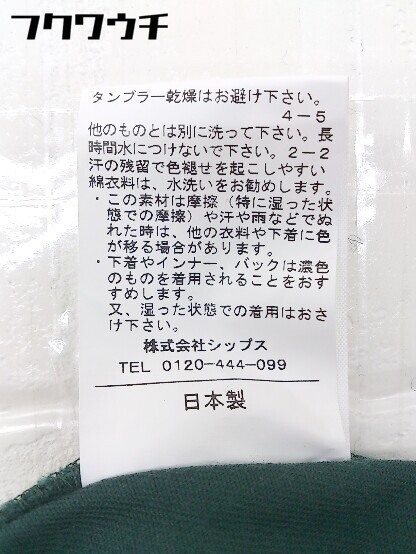 フクワウチ
タンブラー乾燥はお避け下さい。
4－5
他のものとは別に洗って下さい。長
時間水につけないで下さい。2－2
汗の残留で色褪せを起こしやすい
綿衣料は、水洗いをお勧めします。
・この素材は摩擦（特に湿った状
態での摩擦）や汗や雨などでぬ
れた時は、他の衣料や下着に色
が移る場合があります。
・下着やインナー、バックは濃色
のものを着用されることをおす
すめします。
又、湿った状態での着用はおさ
け下さい。
株式会社シップス
TEL 0120-444-099
日本製